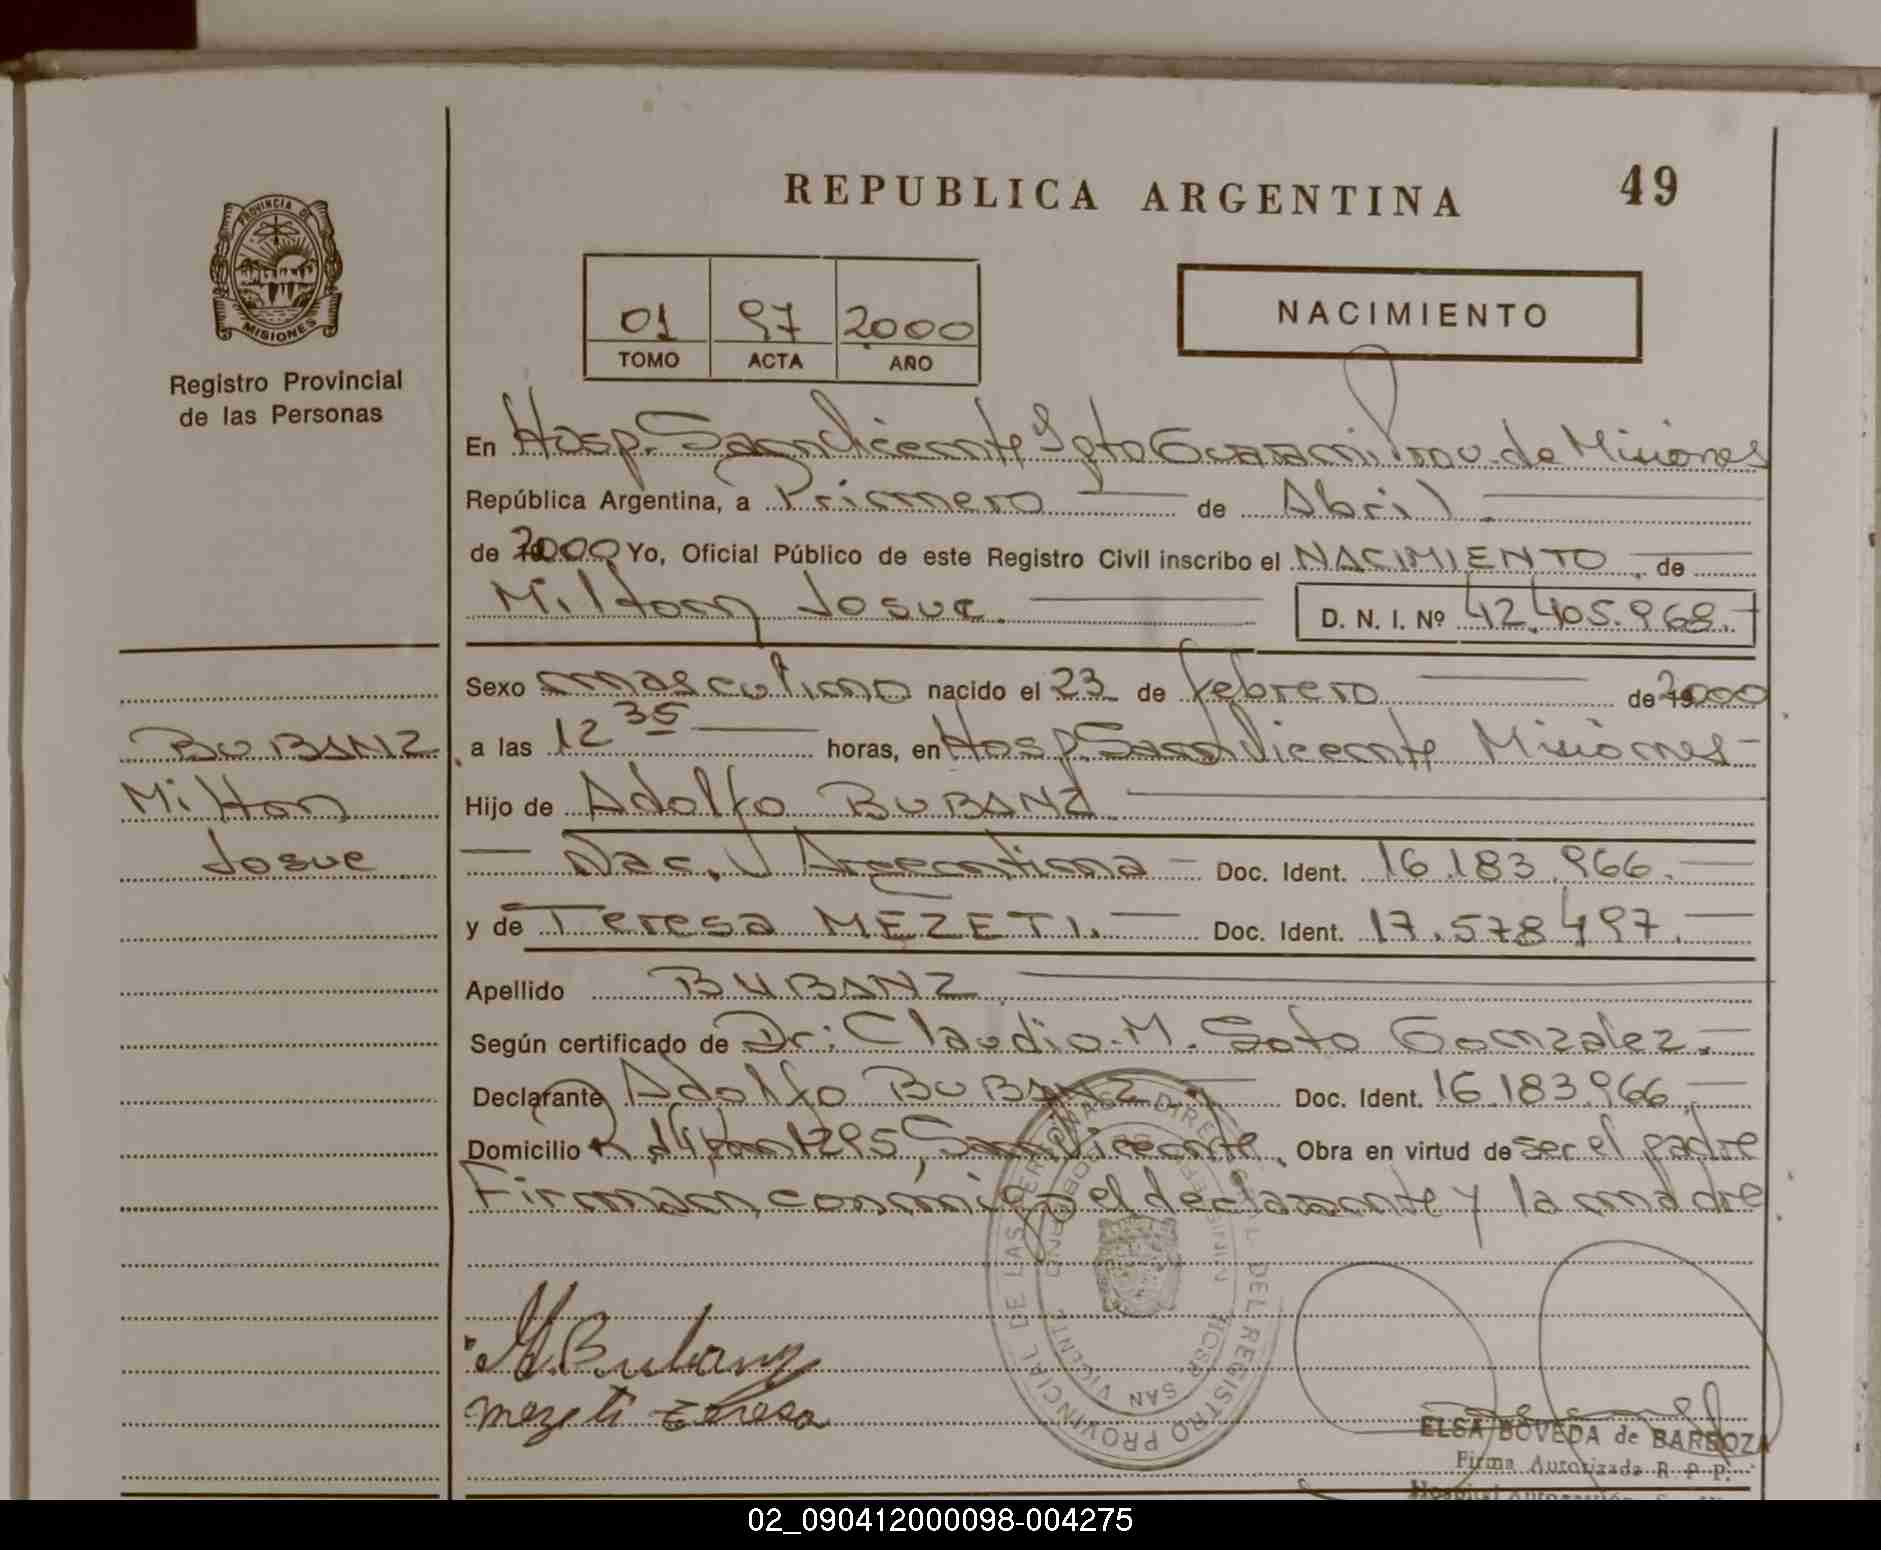 REPUBLICA ARGENTINA
49
PROVINCIA DE
MISIONES
Registro Provincial
de las Personas
01 97 2000
TOMO ACTA AÑO
NACIMIENTO
En Hosp. San Vicente Dpto Guarani Prov. de Misiones
República Argentina, a Primero de Abril
de 2000 Yo, Oficial Público de este Registro Civil inscribo el NACIMIENTO de
Milton Josue. D. N. I. Nº 42.405.968.-
Sexo masculino nacido el 23 de febrero de 2000
a las 12 35 horas, en Hosp. San Vicente Misiones-
Hijo de Adolfo BUBANZ
Nac. Argentina - Doc. Ident. 16.183.966.
y de Teresa MEZETI. Doc. Ident. 17.578.497.
Apellido BUBANZ
BUBANZ
Milton
Josue
Según certificado de Dr: Claudio M. Soto Gonzalez.
Declarante Adolfo BUBANZ Doc. Ident. 16.183.966.
Domicilio R 14 Km 1295, San Vicente. Obra en virtud de ser el padre
Firman conmigo el declarante y la madre
DIRECCION PROVINCIAL DEL REGISTRO PROVINCIAL DE LAS PERSONAS
HOSP. SAN VICENTE
Bubanz
Mezeti Teresa
ELSA BOVEDA de BARBOZA
Firma Autorizada R. P. P.
02_090412000098-004275